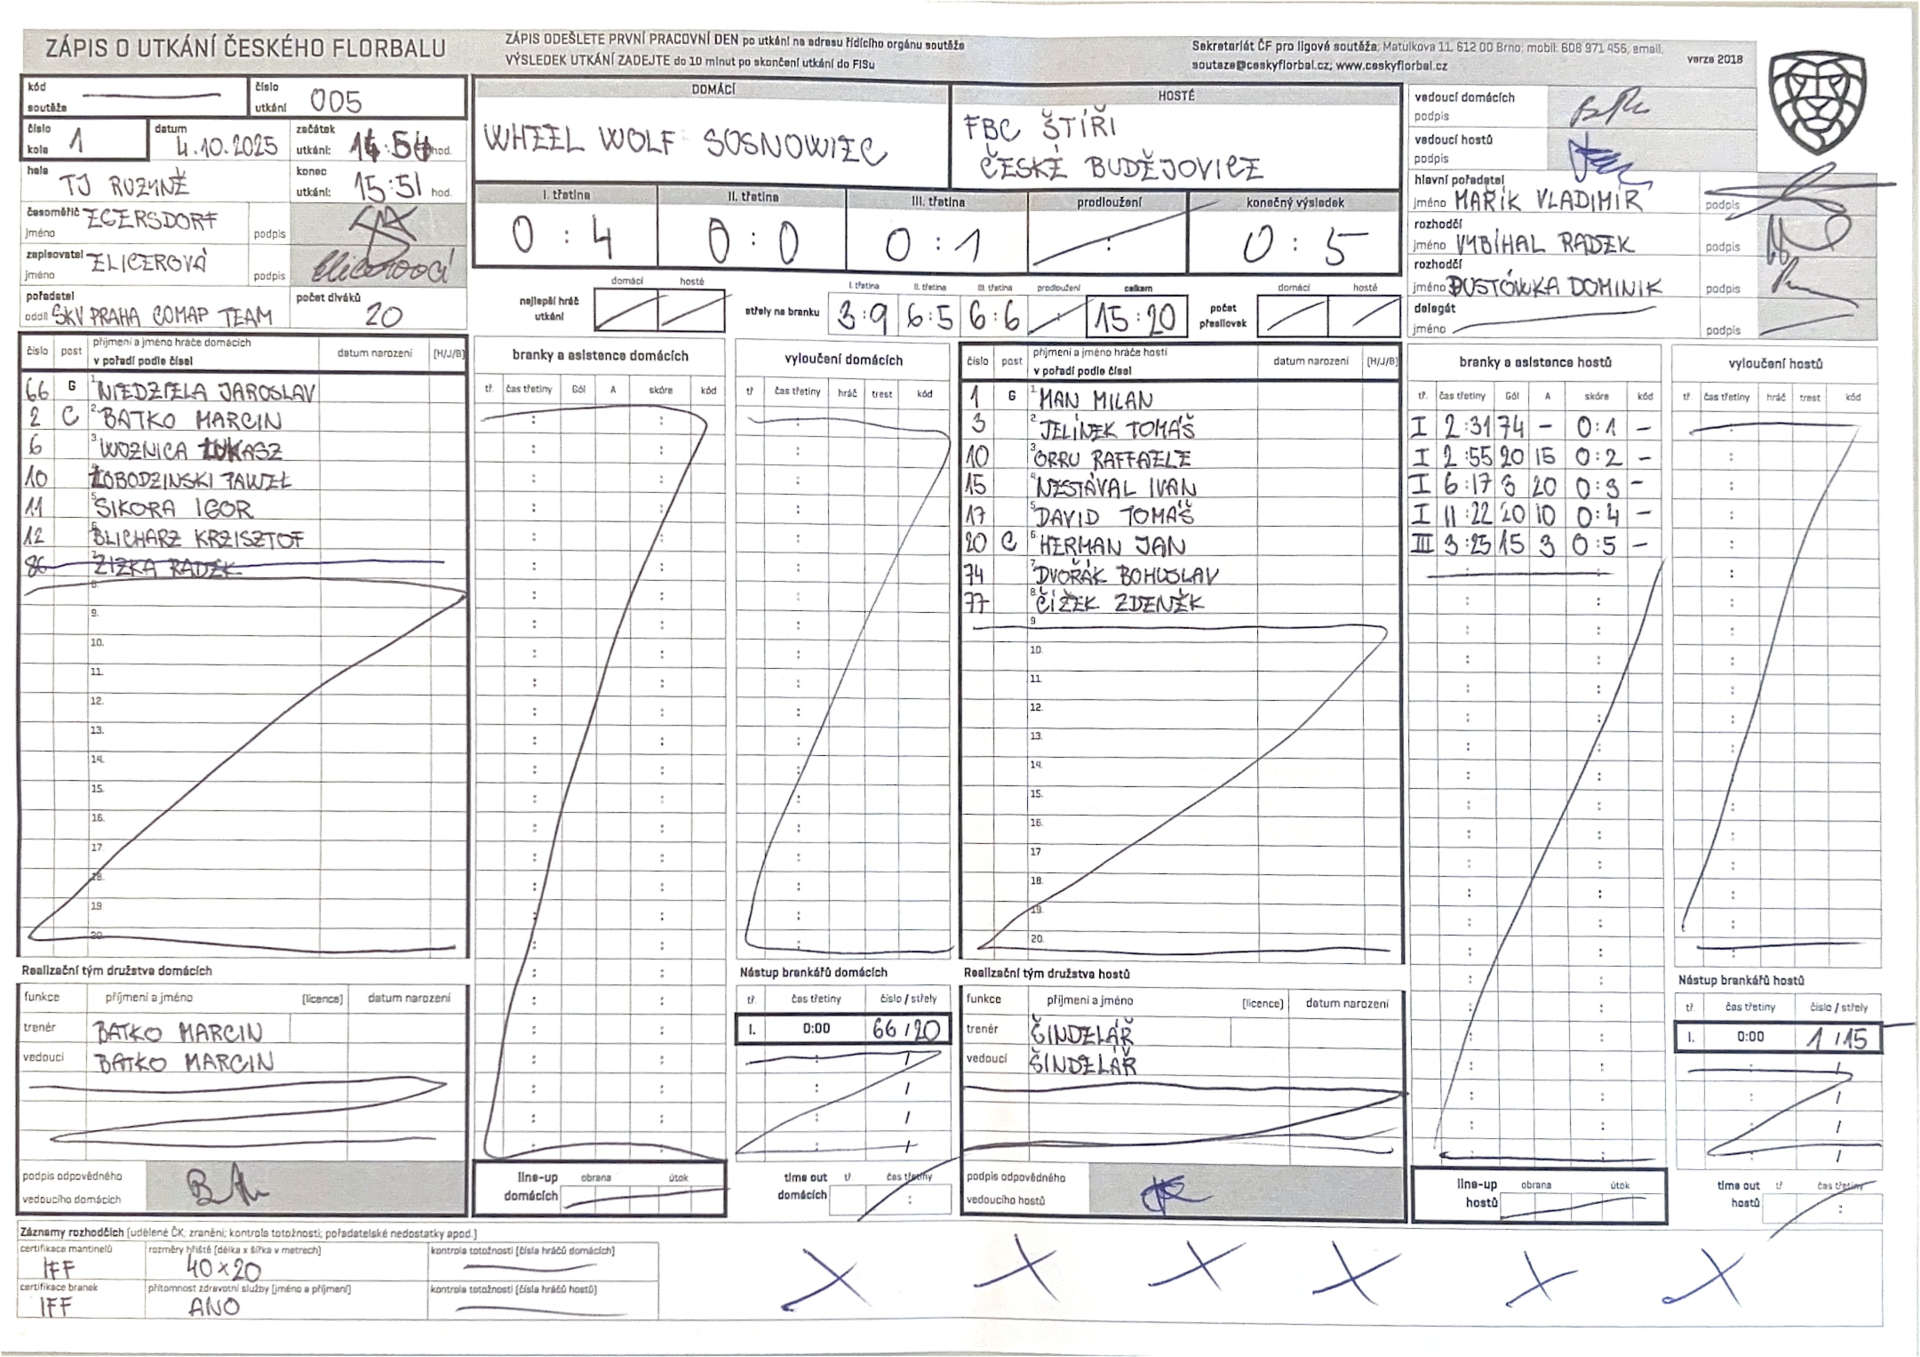 ZÁPIS O UTKÁNÍ ČESKÉHO FLORBALU
ZÁPIS ODEŠLETE PRVNÍ PRACOVNÍ DEN po utkání na adresu řídícího orgánu soutěže
VÝSLEDEK UTKÁNÍ ZADEJTE do 10 minut po skončení utkání do FISu
Sekretariát ČF pro ligové soutěže: Matulkova 11, 612 00 Brno; mobil: 608 971 456, email:
soutaze@ceskyflorbal.cz; www.ceskyflorbal.cz
verze 2018
kód soutěže
číslo utkání 005
číslo kola 1
datum 4.10.2025
začátek utkání: 14:54 hod.
hala TJ RUZYNĚ
konec utkání: 15:51 hod.
časoměřič jméno EGERSDORF podpis
zapisovatel jméno ELICEROVÁ podpis
pořadatel oddíl SKV PRAHA COMAP TEAM
počet diváků 20
DOMÁCÍ
WHEEL WOLF SOSNOWIEC
HOSTÉ
FBC ŠTÍŘI
ČESKÉ BUDĚJOVICE
I. třetina II. třetina III. třetina prodloužení konečný výsledek
0 : 4 0 : 0 0 : 1 : 0 : 5
nejlepší hráč utkání domácí hosté
střely na branku I. třetina II. třetina III. třetina prodloužení celkem
3:9 6:5 6:6 15:20
počet přesilovek domácí hosté
vedoucí domácích podpis
vedoucí hostů podpis
hlavní pořadatel
jméno MAŘÍK VLADIMÍR podpis
rozhodčí
jméno VYBÍHAL RADEK podpis
rozhodčí
jméno DUSTÓWKA DOMINIK podpis
delegát
jméno podpis
číslo post příjmení a jméno hráče domácích v pořadí podle čísel datum narození (H/J/B)
66 G 1 NIEDZIELA JAROSLAV
2 C 2 BATKO MARCIN
6 3 WOZNICA ŁUKASZ
10 ŁOBODZINSKI PAWEŁ
11 5 SIKORA IGOR
12 6 BLICHARZ KRZISZTOF
86 7 ZIZKA RADEK
8.
9.
10.
11.
12.
13.
14.
15.
16.
17.
18.
19.
20.
branky a asistence domácích
tř. čas třetiny Gól A skóre kód
vyloučení domácích
tř čas třetiny hráč trest kód
číslo post příjmení a jméno hráče hostí v pořadí podle čísel datum narození (H/J/B)
1 G 1 MAN MILAN
3 2 JELÍNEK TOMÁŠ
10 3 ORRU RAFFAELE
15 4 NESTÁVAL IVAN
17 5 DAVID TOMÁŠ
20 C 6 HERMAN JAN
74 7 DVOŘÁK BOHUSLAV
77 8 ČÍŽEK ZDENĚK
9
10.
11.
12.
13.
14.
15.
16.
17
18.
19.
20.
branky a asistence hostů
tř. čas třetiny Gól A skóre kód
I 2:31 74 - 0:1 -
I 2:55 20 15 0:2 -
I 6:17 3 20 0:3 -
I 11:22 20 10 0:4 -
III 3:25 15 3 0:5 -
vyloučení hostů
tř čas třetiny hráč trest kód
Realizační tým družstva domácích
funkce příjmení a jméno (licence) datum narození
trenér BATKO MARCIN
vedoucí BATKO MARCIN
podpis odpovědného vedoucího domácích
line-up domácích obrana útok
Nástup brankářů domácích
tř. čas třetiny číslo / střely
I. 0:00 66 / 20
time out domácích tř čas třetiny
Realizační tým družstva hostů
funkce příjmení a jméno (licence) datum narození
trenér ŠINDELÁŘ
vedoucí ŠINDELÁŘ
podpis odpovědného vedoucího hostů
line-up hostů obrana útok
Nástup brankářů hostů
tř. čas třetiny číslo / střely
I. 0:00 1 / 15
time out hostů tř čas třetiny
Záznamy rozhodčích (udělené ČK, zranění; kontrola totožnosti; pořadatelské nedostatky apod.)
certifikace mantinelů IFF
rozměry hřiště (délka x šířka v metrech) 40x20
kontrola totožnosti (čísla hráčů domácích)
certifikace branek IFF
přítomnost zdravotní služby (jméno a příjmení) ANO
kontrola totožnosti (čísla hráčů hostů)